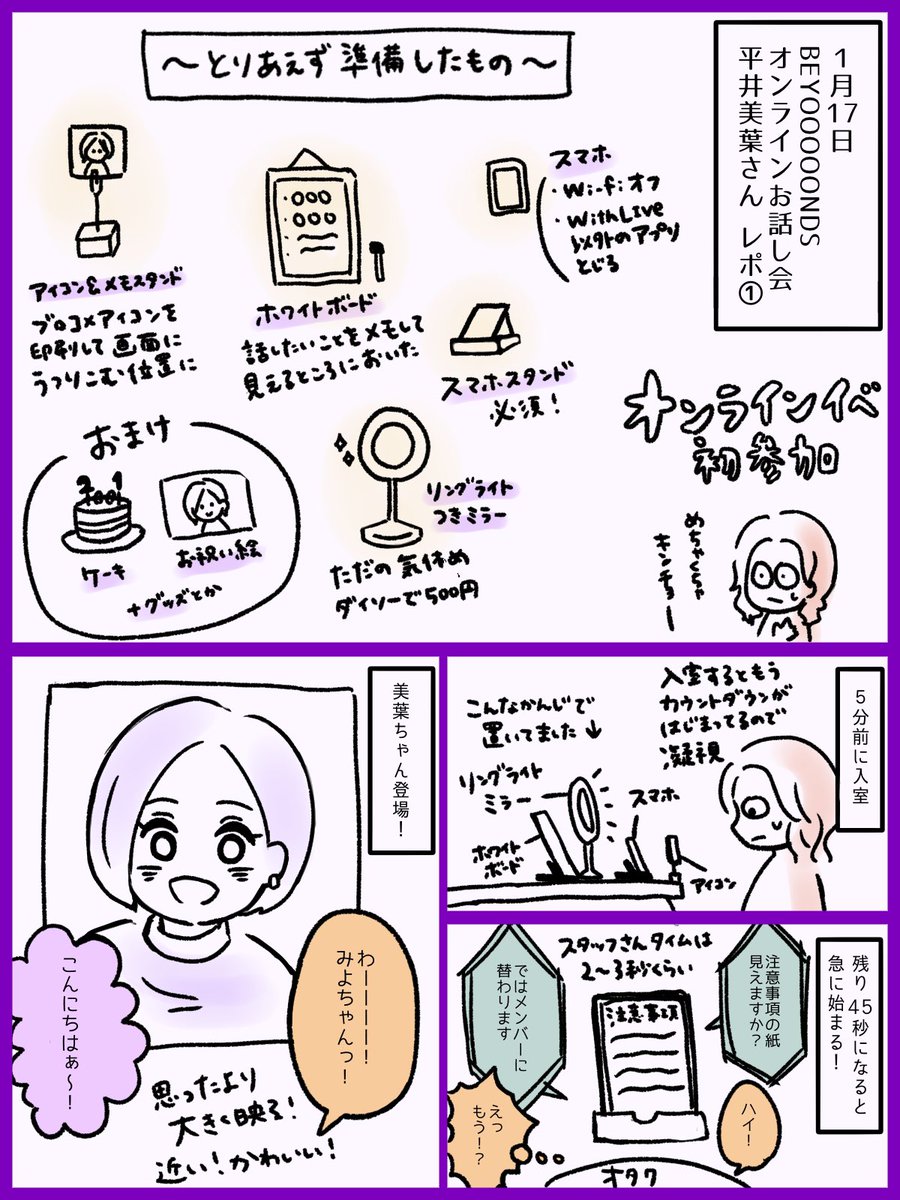 1月17日
BEYOOOOONDS
オンラインお話し会
平井美葉さん レポ①
～とりあえず準備したもの～
アイコン&メモスタンド
ブロコメアイコンを
印刷して画面に
うつりこむ位置に
ホワイトボード
話したいことをメモして
見えるところにおいた
スマホ
・Wi-fiオフ
・WithLive
以外のアプリ
とじる
スマホスタンド
必須!
おまけ
ケーキ
お祝い絵
+グッズとか
リングライト
つきミラー
ただの気休め
ダイソーで500円
オンラインイベ
初参加
めちゃくちゃ
キンチョー
5分前に入室
入室するともう
カウントダウンが
はじまってるので
凝視
こんなかんじで
置いてました↓
リングライト
ミラー
スマホ
ホワイト
ボード
アイコン
残り45秒になると
急に始まる!
スタッフさんタイムは
2〜3秒くらい
注意事項の紙
見えますか?
注意事項
ハイ!
ではメンバーに
替わります
えっ
もう!?
オタク
美葉ちゃん登場!
わーーーー!
みよちゃんっ!
こんにちはぁ〜!
思ったより
大きく映る!
近い!かわいい!